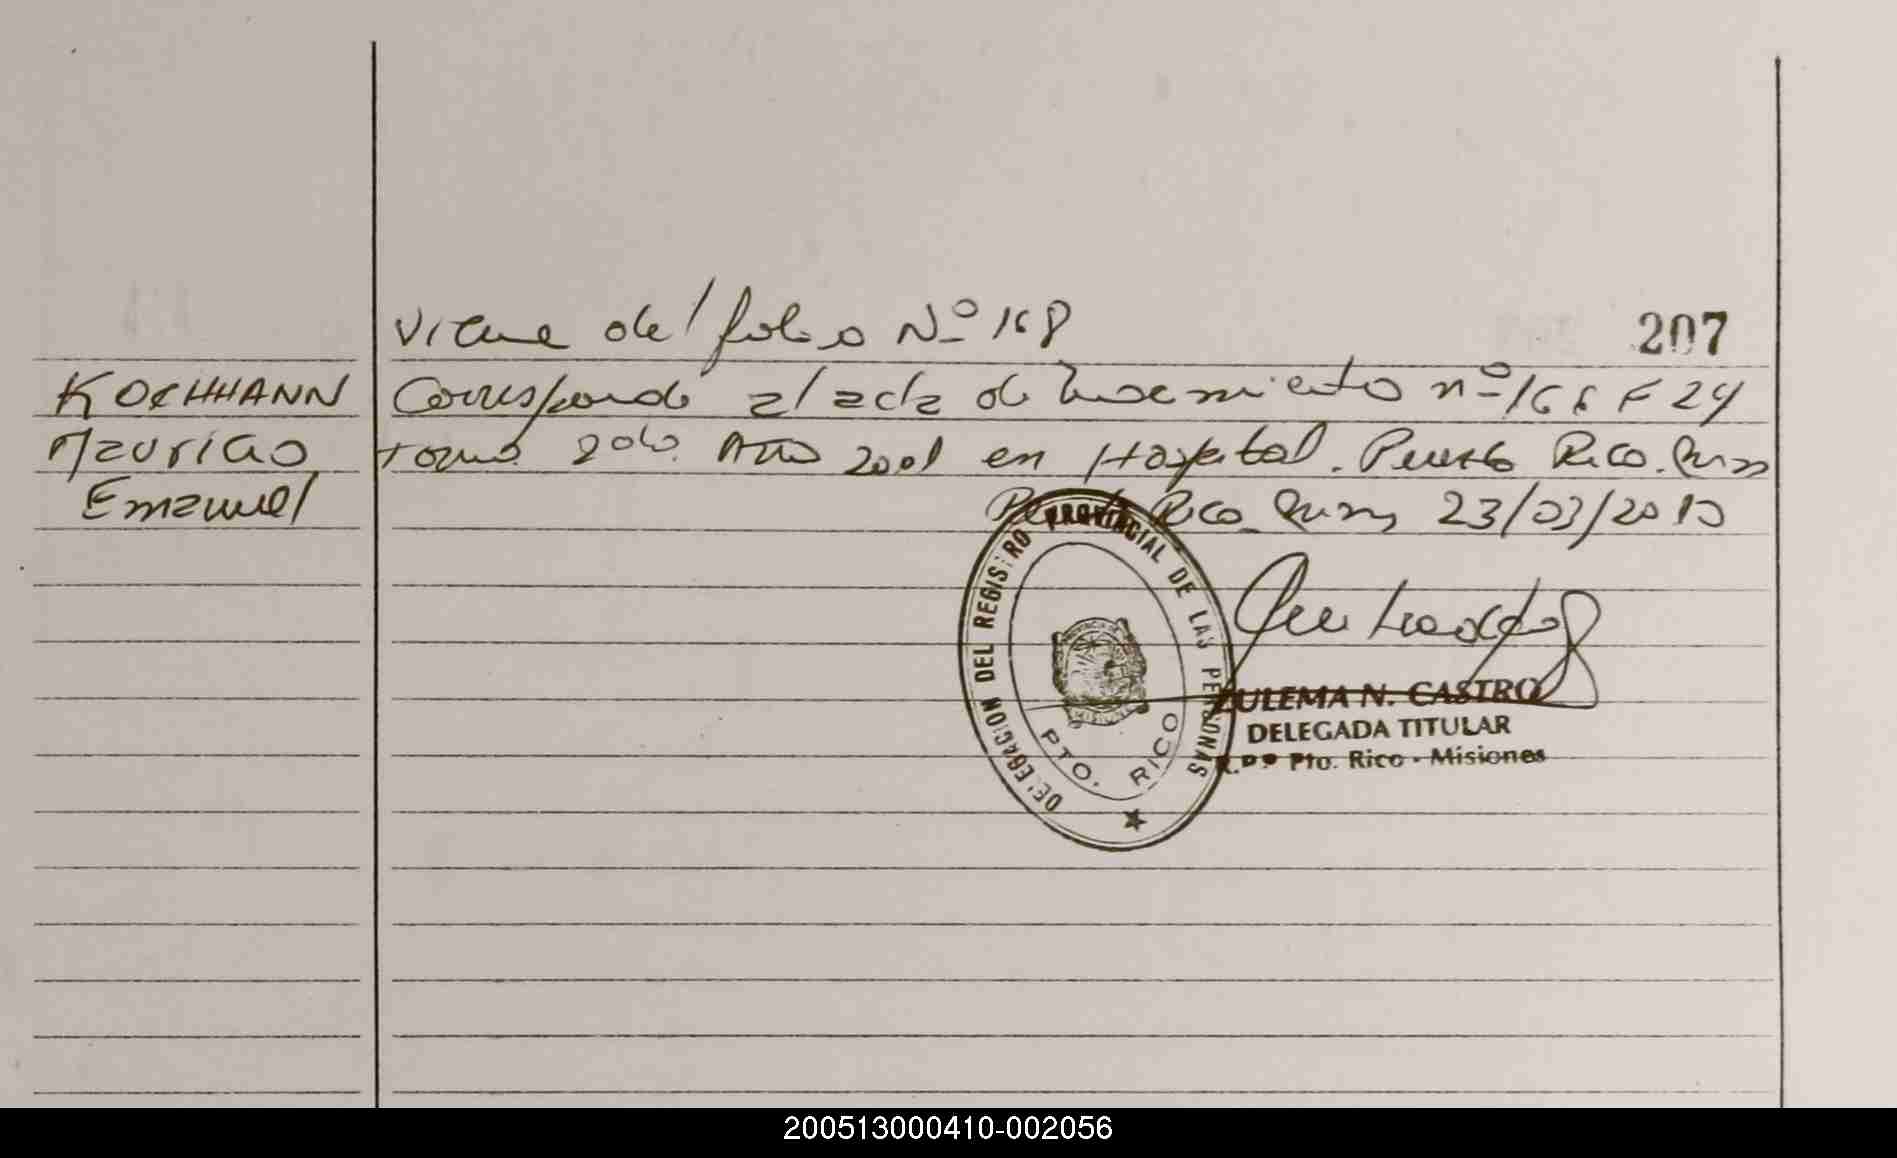 Viene del folio Nº 168
207
KOCHHANN
Mauricio
Emanuel
Corresponde al acta de Nacimiento nº 166 F 24
tomo 2do. Año 2001 en Hospital. Puerto Rico. Mnes
Puerto Rico. Mnes, 23/03/2010
DELEGACION DEL REGISTRO PROVINCIAL DE LAS PERSONAS
PTO. RICO
ZULEMA N. CASTRO
DELEGADA TITULAR
R.P.P Pto. Rico - Misiones
200513000410-002056